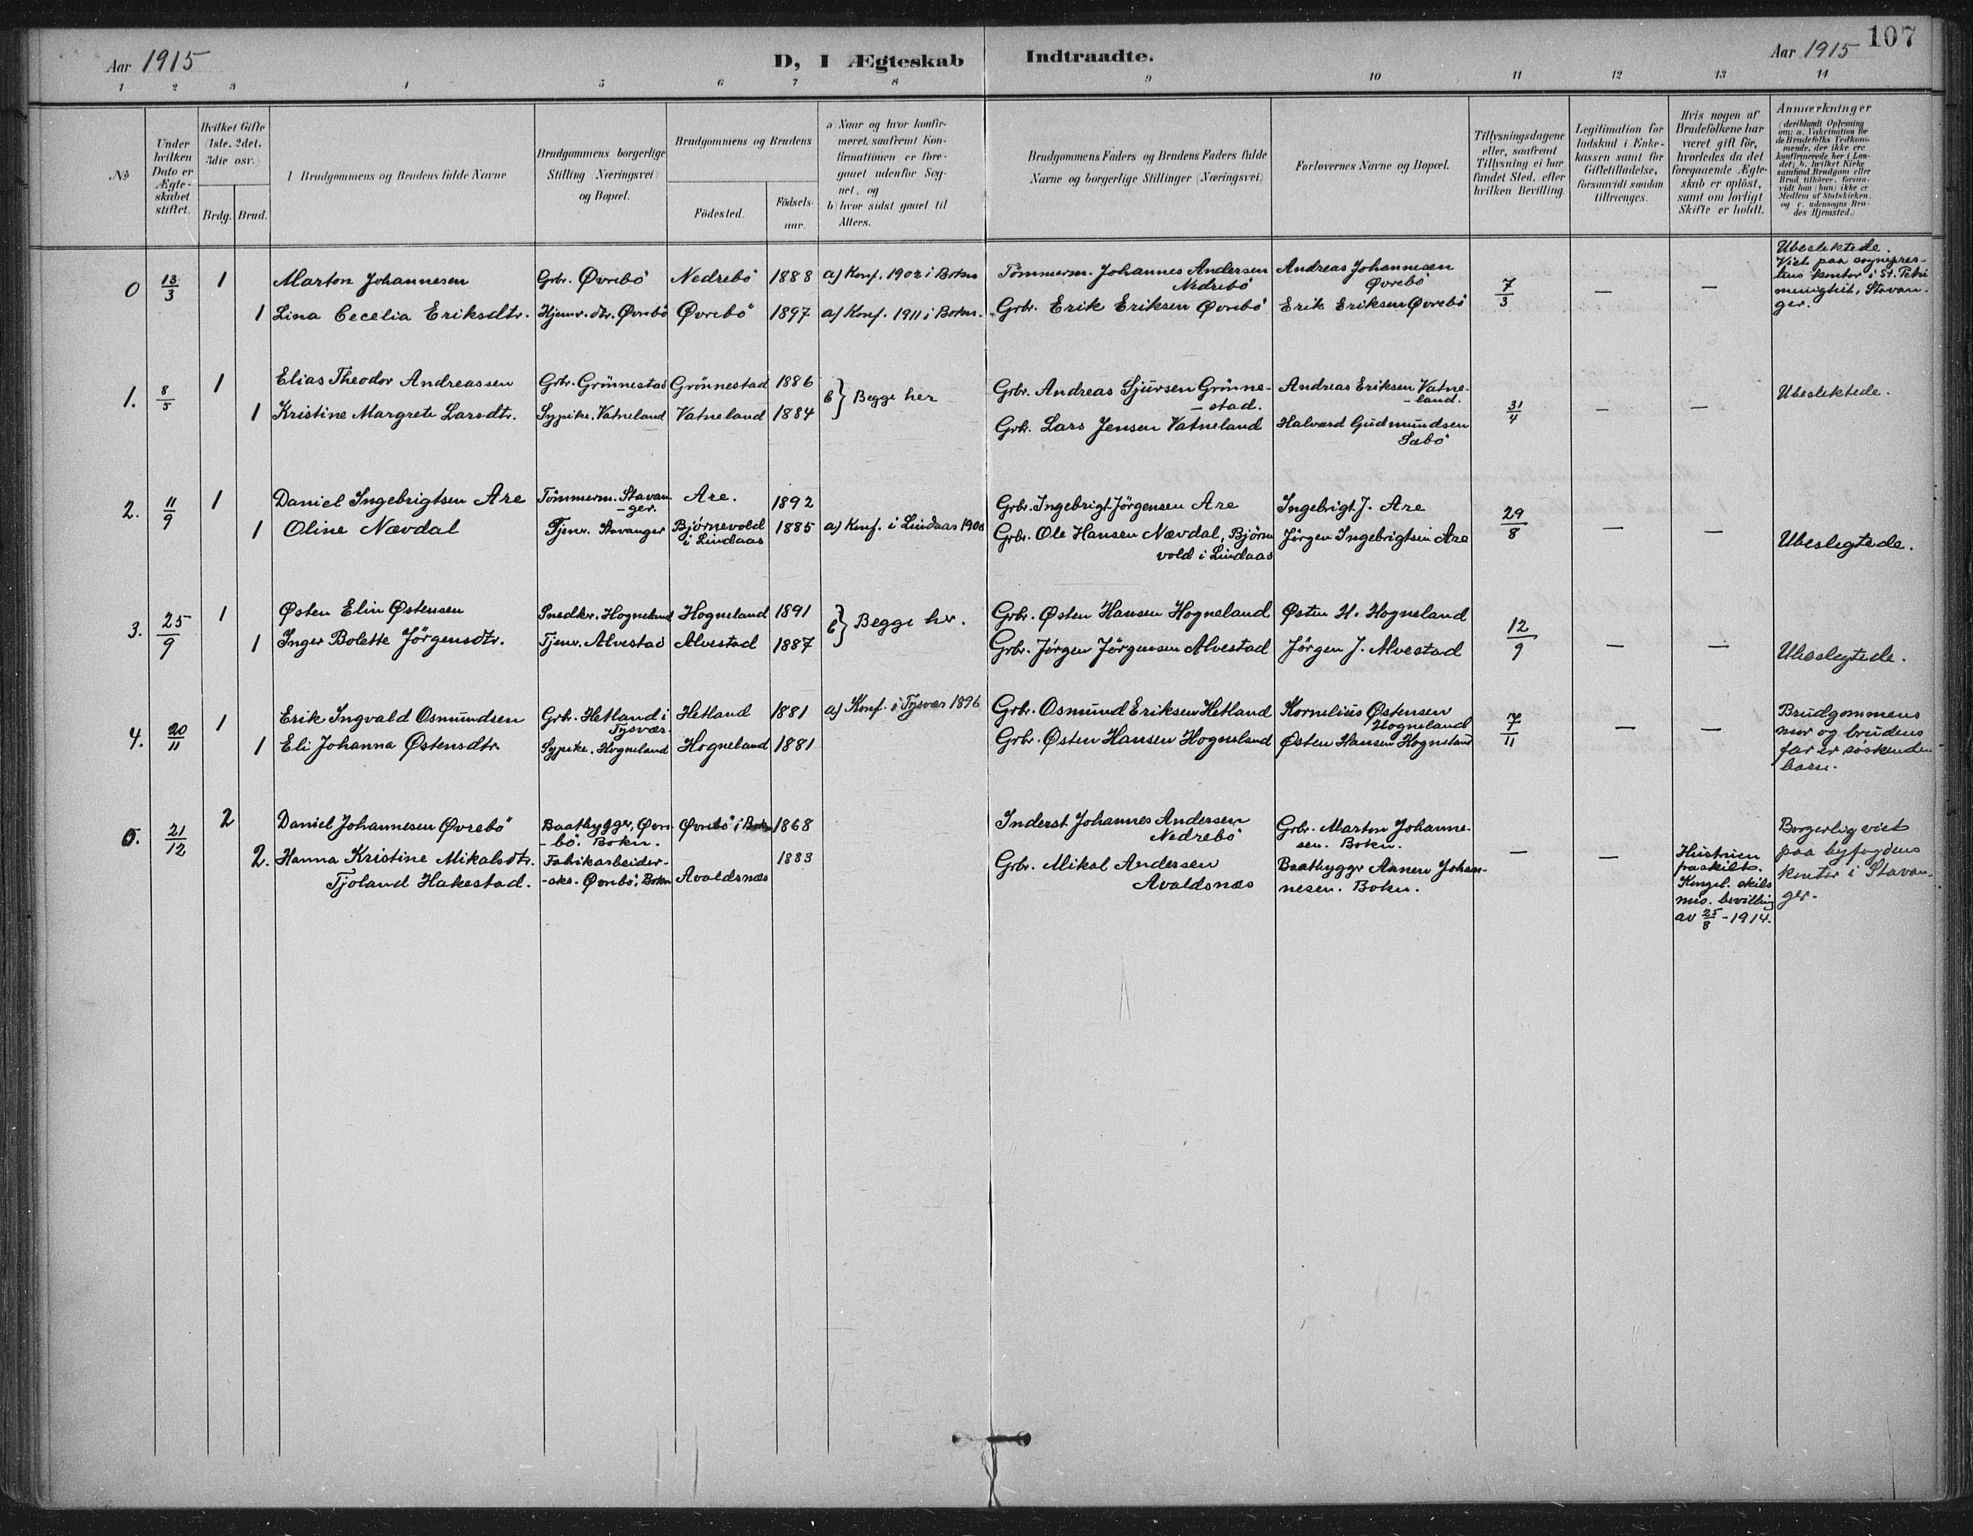 Aar 1915
D, I Ægteskab Indtraadte.
Aar 1915
107
1 2 3 4 5 6 7 8 9 10 11 12 13 14
No
Under hvilken Dato er Ægteskabet stiftet.
Hvilket Gifte (1ste, 2det, 3die osv.)
Brdg. Brud.
Brudgommens og Brudens fulde Navne
Brudgommens borgerlige Stilling (Næringsvei) og Bopæl.
Brudgommens og Brudens
Fødested.
Fødselsaar.
a) Naar og hvor konfirmeret, saafremt Konfirmationen er foregaaet udenfor Sognet, og
b) hvor sidst gaaet til Alters.
Brudgommens Faders og Brudens Faders fulde Navne og borgerlige Stillinger (Næringsvei)
Forlovernes Navne og Bopæl.
Tillysningsdagene eller, saafremt Tillysning ei har fundet Sted, efter hvilken Bevilling.
Legitimation for Indskud i Enkekassen samt for Giftetilladelse, forsaavidt saadan tiltrænges.
Hvis nogen af Brudefolkene har været gift før, hvorledes da det foregaaende Ægteskab er opløst, samt om lovligt Skifte er holdt.
Anmærkninger (deriblandt Oplysning om: a. Vakcination for de Brudefolks Vedkommende, der ikke ere konfirmerede her i Landet; b. hvilket Kirkesamfund Brudgom eller Brud tilhører, forsaavidt han (hun) ikke er Medlem af Statskirken, og c. udensogns Brudes Hjemsted.)
0 13/3 1 Marton Johannesen Grbr. Øvrebö Nedrebö 1888 a) Konf. 1902 i Bokn Tömmerm. Johannes Andersen Nedrebö Andreas Johannesen Øvrebö 7/3 — — Ubeslektede. Viet paa sogneprestens kontor i St. Petri menighet, Stavanger.
1 Lina Cecelia Eriksdtr. Hjemv. dtr. Øvrebö Øvrebö 1897 a) Konf. 1911 i Bokn. Grbr. Erik Eriksen Øvrebö Erik Eriksen Øvrebö
1. 8/5 1 Elias Theodor Andreassen Grbr. Grönnestad Grönnestad 1886 b} Begge her Grbr. Andreas Sjursen Grönne-stad. Andreas Eriksen Vatne-land. 31/4 — — Ubeslektede.
1 Kristine Margrete Larsdtr. Sypike. Vatneland Vatneland 1884 Grbr. Lars Jensen Vatneland Halvard Gudmundsen Sæbö
2. 11/9 1 Daniel Ingebrigtsen Are Tömmerm. Stavan-ger. Are. 1892 Grbr. Ingebrigt Jörgensen Are Ingebrigt J. Are 29/8 — — Ubeslegtede.
1 Oline Nævdal Tjenr. Stavanger Bjørnevold i Lindaas 1885 a) Konf. i Lindaas 1900 Grbr. Ole Hansen Nævdal, Bjørnvold i Lindaas Jörgen Ingebrigtsen Are
3. 25/9 1 Østen Elin Østensen Snedkr. Hogneland Hogneland 1891 b} Begge her. Grbr. Østen Hansen Hogneland Østen H. Hogneland 12/9 — — Ubeslegtede.
1 Inger Bolette Jörgensdtr. Tjenr. Alvestad Alvestad 1887 Grbr. Jörgen Jörgensen Alvestad Jörgen J. Alvestad
4. 20/11 1 Erik Ingvald Osmundsen Grbr. Hetland i Tysvær. Hetland 1881 a) Konf. i Tysvær 1896 Grbr. Osmund Eriksen Hetland Kornelius Østensen Hogneland 7/11 — — Brudgommens mor og brudens far er söskendebarn.
1 Eli Johanna Østensdtr. Sypike. Hogneland Hogneland 1881 Grbr. Østen Hansen Hogneland Østen Hansen Hogneland
5. 21/12 2 Daniel Johannesen Øvrebö Baatbygger, Øvre-bö. Bokn. Øvrebö i Bokn 1868 Inderst Johannes Andersen Nedrebö Grbr. Marton Johannesen. Bokn. — — Hustruen fraskilt. Kongel. skilsmis. bevilling av 25/8 - 1914. Borgerlig viet paa byfogdens kontor i Stavanger.
2. Hanna Kristine Mikalsdtr. Tjoland Hakestad. Fabrikarbeider-ske. Øvrebö, Bokn Avaldsnæs 1883 Grbr. Mikal Andersen Avaldsnæs Baatbyggr Johannesen. Bokn.